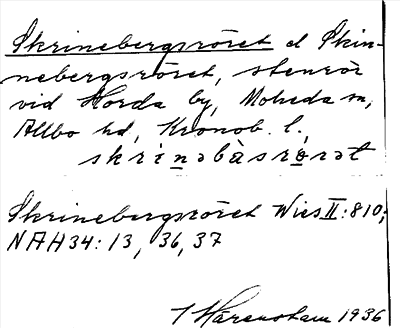 Skrinebergsröret el Skin-
nebergsröret, stenrör
vid Horda by, Moheda sn,
Allbo hd, Kronob. l.,
skrinəbàsrørət
Skrinebergsröret Wies II: 810;
NAH34: 13, 36, 37
1936